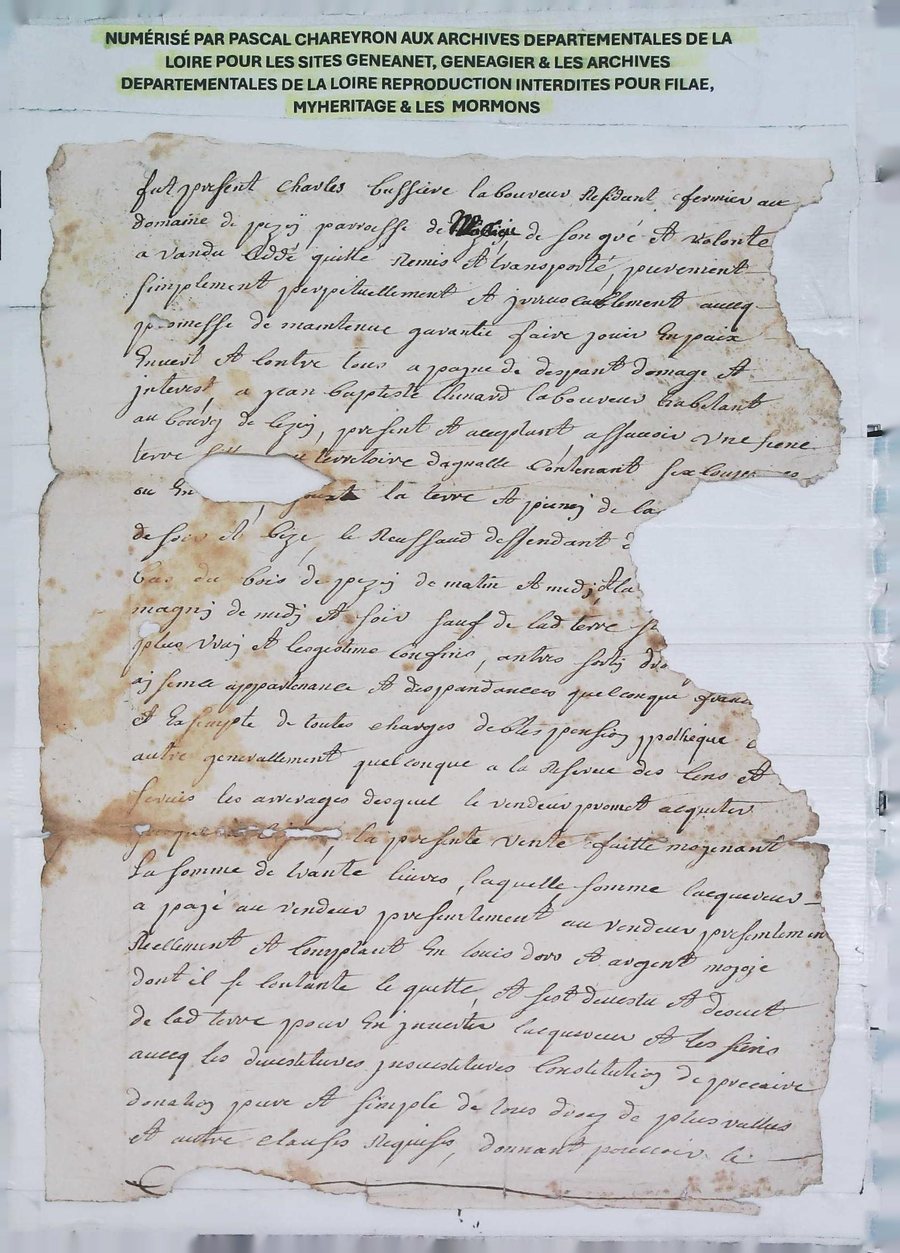 NUMÉRISÉ PAR PASCAL CHAREYRON AUX ARCHIVES DEPARTEMENTALES DE LA
LOIRE POUR LES SITES GENEANET, GENEAGIER & LES ARCHIVES
DEPARTEMENTALES DE LA LOIRE REPRODUCTION INTERDITES POUR FILAE,
MYHERITAGE & LES MORMONS
fut present Charles bussiere laboureur Residant fermier au
domaine de parroisse de de son gré Et volonté
a vandu Cédé quitte Remis Et transporté, purement
simplement perpetuellement Et jrrevocablement avecq
promesse de maintenue garantie faire jouir En paix
Envers Et Contre tous a payne de despant domage Et
jnterest, a jean baptiste laboureur habitant
au bourg de, present Et acceptant assavoir vne siene
terre territoire Contenant six
ou En la terre Et de la
de soir Et bize, le deffendant
bas du bois de de matin Et medj Et la
magnj de medj Et soir sauf de lad terre
plus vraj Et legistime Confins, antres sortj
appartenance Et despandances quelconque franc
Et Exsempte de toutes charges debtes pension ypothèque
autre generallement quelconque a la Reserve des Cens Et
servis les arrerages desquel le vendeur promet acquiter
la presente vente faitte moyenant
La somme de trante livres, laquelle somme lacquereur
a payé au vendeur presentement au vendeur presentemen
Reellement Et Comptant En louis dors Et argent
dont il se Contante le quitte, Et sest devestu Et
de lad terre pour En jnvestir lacquereur Et les siens
avecq les devestitures jnvestitures Constitution de precaire
donation pure Et simple de tous de plus vallus
Et autre Clauses Requises, donnant pouvoir